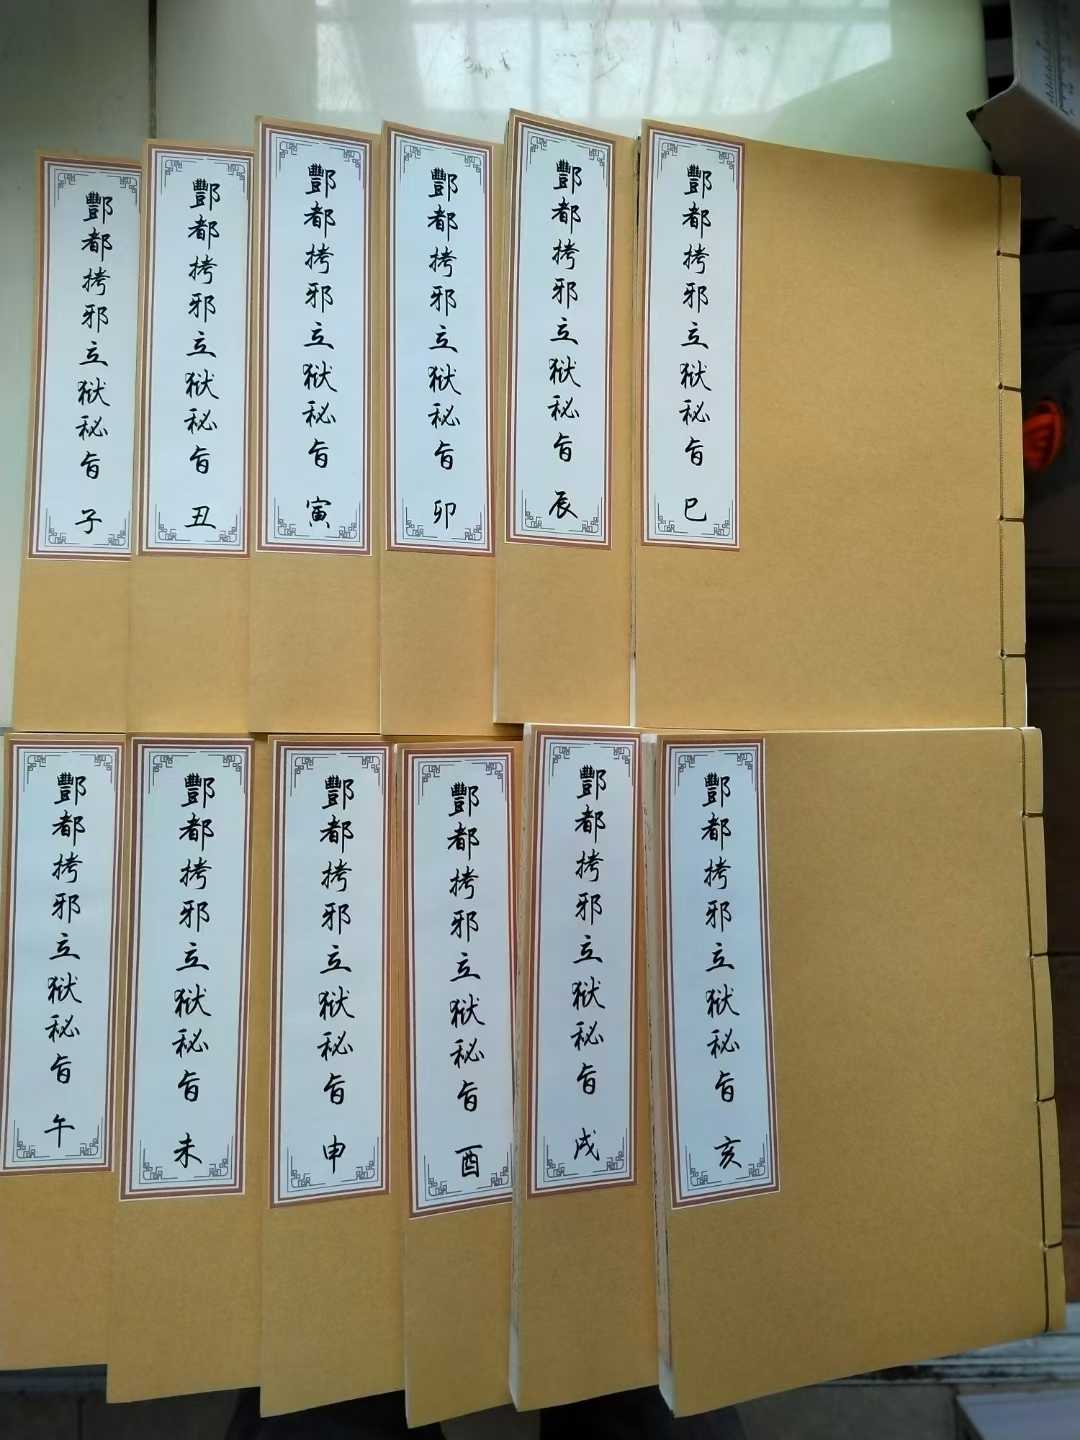 酆都拷邪立獄秘旨 子
酆都拷邪立獄秘旨 丑
酆都拷邪立獄秘旨 寅
酆都拷邪立獄秘旨 卯
酆都拷邪立獄秘旨 辰
酆都拷邪立獄秘旨 巳
酆都拷邪立獄秘旨 午
酆都拷邪立獄秘旨 未
酆都拷邪立獄秘旨 申
酆都拷邪立獄秘旨 酉
酆都拷邪立獄秘旨 戌
酆都拷邪立獄秘旨 亥